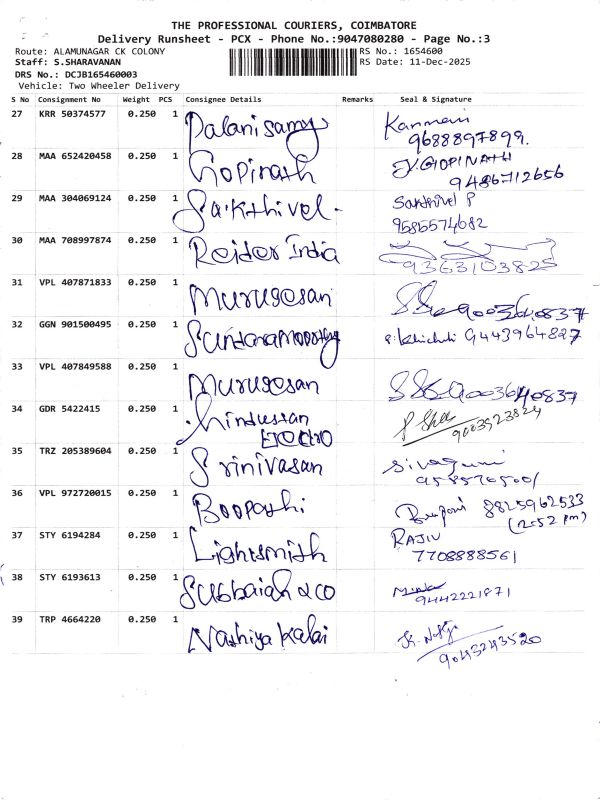 THE PROFESSIONAL COURIERS, COIMBATORE
Delivery Runsheet - PCX - Phone No.:9047080280 - Page No.:3
Route: ALAMUNAGAR CK COLONY RS No.: 1654600
Staff: S.SHARAVANAN RS Date: 11-Dec-2025
DRS No.: DCJB165460003
Vehicle: Two Wheeler Delivery
S No Consignment No Weight PCS Consignee Details Remarks Seal & Signature
27 KRR 50374577 0.250 1 Palanisamy Kanmani
9688897899.
28 MAA 652420458 0.250 1 Gopinath J. GIOPINATH
9486712656
29 MAA 304069124 0.250 1 Sakthivel. Sakthivel P
9585574682
30 MAA 708997874 0.250 1 Reider India
9363103825
31 VPL 407871833 0.250 1 Murugesan 9003640837
32 GGN 901500495 0.250 1 Sundaramoorthy 9443964827
33 VPL 407849588 0.250 1 Murugesan 9003640837
34 GDR 5422415 0.250 1 hindustan
Electro 9003523824
35 TRZ 205389604 0.250 1 Srinivasan Sivagami
36 VPL 972720015 0.250 1 Boopathi 8825962533
(2.52 pm)
37 STY 6194284 0.250 1 Lightsmith RAJIV
7708888561
38 STY 6193613 0.250 1 Subbaiah & co
9442221871
39 TRP 4664220 0.250 1 Nashiya Kalai
9043243520